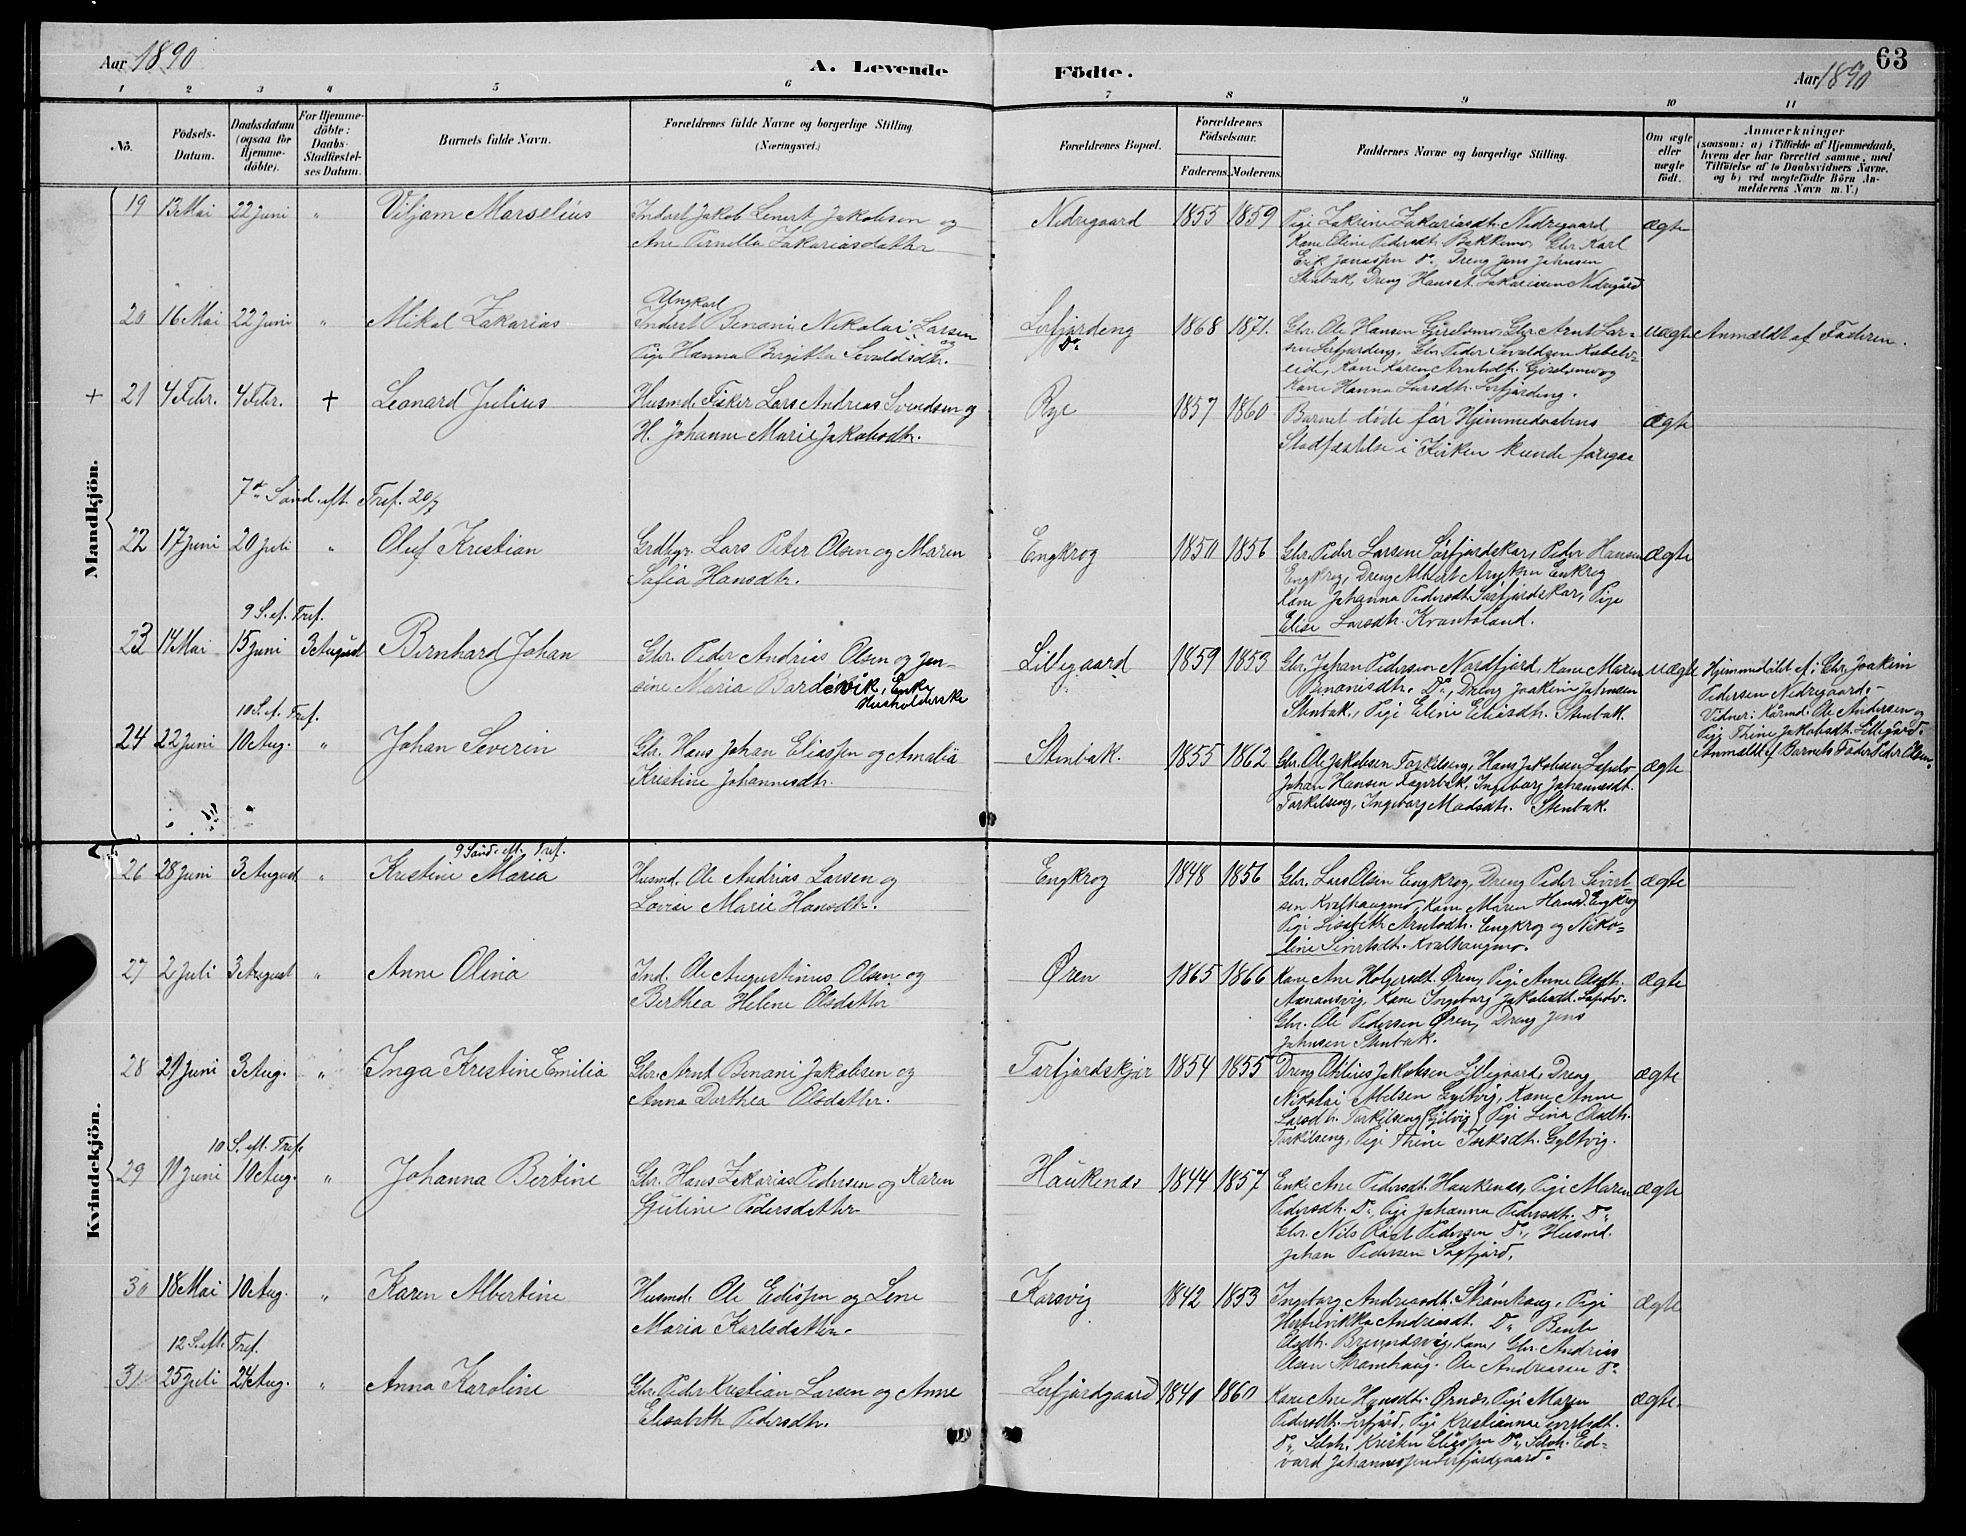 63
Aar 1890
A. Levende
Födte.
Aar 1890
1 2 3 4 5 6 7 8 9 10 11
No.
Födsels-Datum.
Daabsdatum (ogsaa for Hjemmedöbte).
For Hjemmedöbte: Daabs-Stadfæstelses Datum.
Barnets fulde Navn.
Forældrenes fulde Navne og borgerlige Stilling.
(Næringsvei.)
Forældrenes Bopæl.
Forældrenes Födselsaar.
Faderens. Moderens.
Faddernes Navne og borgerlige Stilling.
Om ægte eller uægte födt.
Anmærkninger
(saasom: a) i Tilfælde af Hjemmedaab,
hvem der har forrettet samme, med
Tilföielse af to Daabsvidners Navne,
og b) ved uægtefödte Börn An-
melderens Navn m. V.)
Mandkjön.
19 13 Mai 22 Juni " Viljam Marselius
Inderst Jakob Lenert Jakobsen og
Ane Pernella Zakariasdatter
Nedregaard 1855 1859
Pige Zakrine Zakariasdtr. Nedregaard,
Kone Oline Pedersdt. Bakkemo, Gbr. Karl
Erik Jonassen Do., Dreng Jens Johnsen
Stenbak, Dreng Hans A. Zakariasen Nedregård
ægte
20 16 Mai 22 Juni " Mikal Zakarias
Ungkarl
Inderst Benoni Nikolai Larsen og
Pige Hanna Birgitta Sevaldsdtr.
Leifjordeng
Do.
1868 1871.
Gbr. Ole Hansen Gjerdsmo, Gbr. Arnt Lar-
sen Leifjordeng, Gbr. Peder Sevaldsen Kobelv-
eid, Kone Karen Arntsdt. Gjerdsmo og
Kone Hanna Larsdtr. Leifjordeng.
uægte Anmeldt af Faderen.
+ 21 4 Febr. 4 Febr. + Leonard Julius
Husmd. Fisker Lars Andreas Svendsen og
H. Johanne Marie Jakobsdtr.
Rye 1857 1860
Barnet døde før Hjemmedaabens
Stadfæstelse i Kirken kunde foregaa
ægte
7de Sönd. eft. Tref. 20/7
22 17 Juni 20 Juli " Oluf Kristian
Grdbgr. Lars Peter Olsen og Maren
Sofia Hansdtr.
Engkrog 1850 1856
Gbr. Peder Larsen Sörfjordskar, Peder Hansen
Engkrog, Dreng Albert Enkrog
Kone Johanna Pedersdt. Sörfjordskar, Pige
Elise Larsdtr. Kvantoland.
ægte
9 S. ef. Tref.
23 14 Mai 15 Juni 3 August Bernhard Johan
Gbr. Peder Andreas Olsen og Jen-
sine Maria Bardevik, Enke
Husholderske
Lillegaard 1859 1853
Gbr. Johan Pedersen Nordfjord, Kone Maren
Benonisdtr. Do., Dreng Joakim Johnsen
Stenbak, Pige Eline Eliasdtr. Stenbak.
uægte
Hjemmedöbt af: Gbr. Joakim
Pedersen Nedregaard.-
Vidner: Kårmd. Ole Andersen og
Pige Thine Jakobsdt. Lillegård.
Anmeldt af Barnets Fader Peder Olsen.
10 S. ef. Tref.
24 22 Juni 10 Aug. " Johan Severin
Gbr. Hans Johan Eliassen og Amalia
Kristine Johannesdtr.
Stenbak. 1855 1862
Gbr. Ole Jakobsen Torkilseng, Hans Jakobsen
Johan Hansen Fagerbak, Ingeborg Johannesdt.
Torkilseng, Ingeborg Madsdtr. Stenbak.
ægte
Kvindekjön.
9 Sönd. eft. Tref.
26 28 Juni 3 August " Kristine Maria
Husmd. Ole Andrias Larsen og
Lovise Marie Hansdtr.
Engkrog 1848 1856
Gbr. Lars Olsen Engkrog, Dreng Peder Sivert-
sen Kvalhaugmo, Kone Maren Hansd. Engkrog
Pige Lisabeth Arntsdtr. Engkrog og Niko-
line Sivertsdt. Kvalhaugmo.
ægte
27 2 Juli 3 August " Anne Olina
Ind. Ole Augustinus Olsen og
Berthea Helene Olsdatter
Øren 1865 1866
Kone Ane Holgersdt. Øren, Pige Anne Olsdtr.
Kone Ingeborg Jakobsdt.
Gbr. Ole Pedersen Øren, Dreng Jens
Johnsen Stenbak.
ægte
28 21 Juni 3 Aug. " Inga Kristine Emilia
Gbr. Arnt Benoni Jakobsen og
Anna Dorthea Olsdatter.
Torfjordskjær 1854 1855
Dreng Otilius Jakobsen Lillegaard, Dreng
Nikolai Abelsen Gyltvig, Kone Anne
Larsdtr. Torkilseng (Gjltvig) Pige Lina Olsdtr.
Torkilseng, Pige Thine Gyltvig.
ægte
10 S. eft. Tref.
29 11 Juni 10 Aug. " Johanna Bertine
Gbr. Hans Zakarias Pedersen og Karen
Gjertine Pedersdatter
Haukenæs 1844 1857
Enke Ane Pedersdt. Haukenæs, Pige Maren
Pedersdt. Do., Pige Johanna Pedersdt. Do.
Gbr. Nils Pedersen Do., Husmd.
Johan Pedersen Sagfjord.
ægte
30 18 Mai 10 Aug. " Karen Albertine
Husmd. Ole Edissen og Lene
Maria Karlsdatter
Korsvig 1842 1853
Ingeborg Andreasdt. Strömhaug, Pige
Andreasdt. Do. Bente
Olsdtr. Brunndsvig, Kone, Gbr. Andreas
Olsen Strömhaug. Ole Andreasen Do.
ægte
12 S. eft. Tref.
31 25 Juli 24 Aug. " Anna Karoline
Gbr. Peder Kristian Larsen og Anne
Elisabeth Pedersdtr.
Leifjordgaard 1840 1860
Kone Ane Hansdtr. Ørnes, Pige Maren
Pedersdtr. Leirfjord, Pige Kristianna Sivertsdt.
Do., Selvh. Kristen Eliassen Do., Selvh. Ed-
vard Johannessen Leifjordgaard.
ægte.